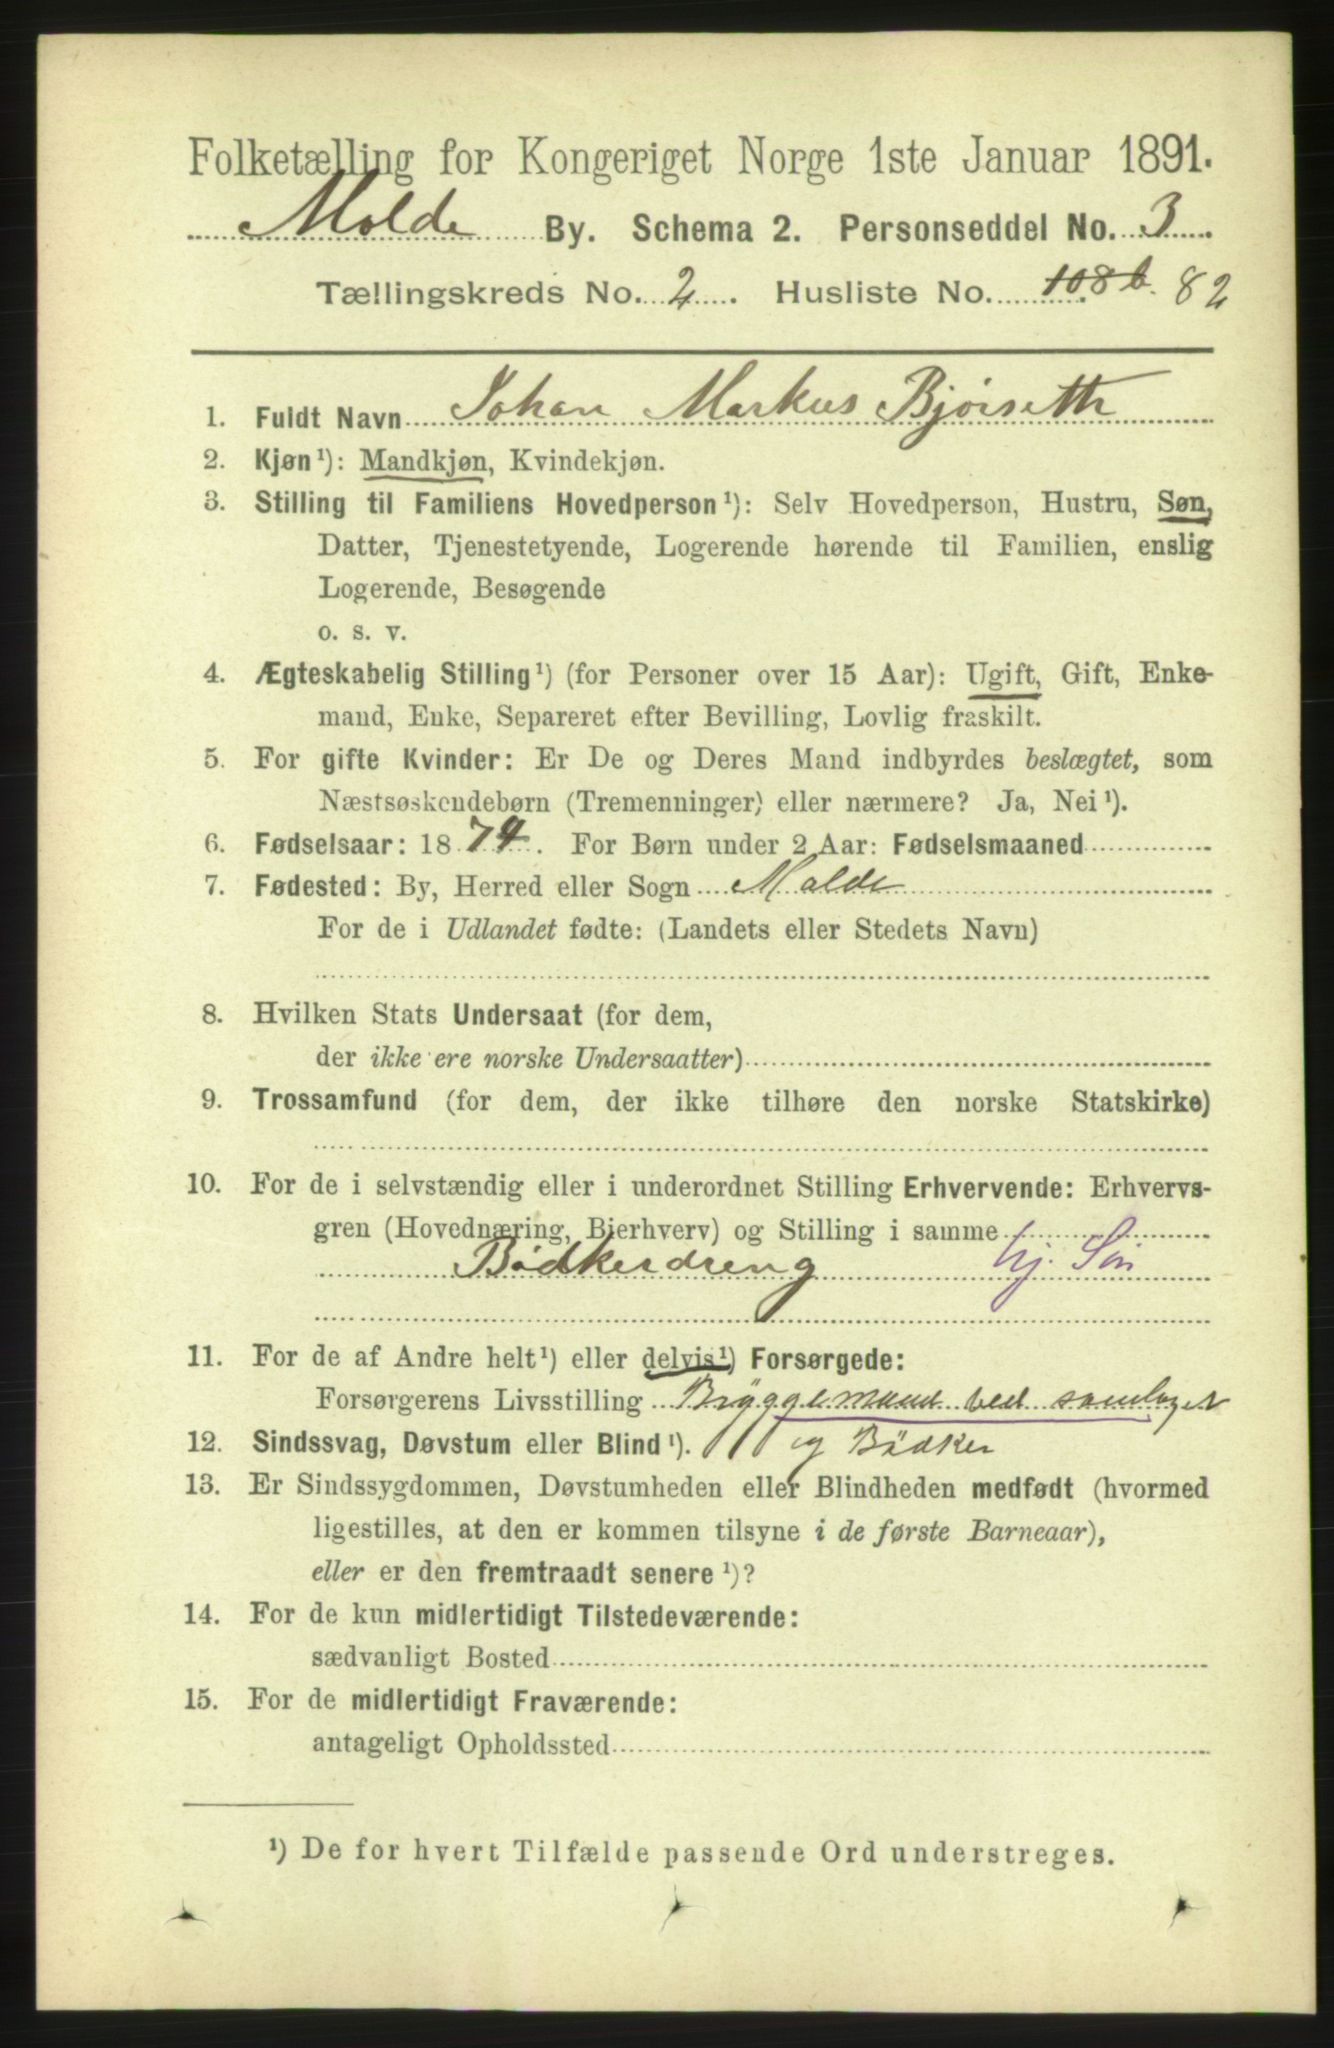 Folketælling for Kongeriget Norge 1ste Januar 1891.
Molde By. Schema 2. Personseddel No. 3
Tællingskreds No. 2. Husliste No. 108 b. 82
1. Fuldt Navn Johan Markus Bjørseth
2. Kjøn¹): Mandkjøn, Kvindekjøn.
3. Stilling til Familiens Hovedperson¹): Selv Hovedperson, Hustru, Søn,
Datter, Tjenestetyende, Logerende hørende til Familien, enslig
Logerende, Besøgende
o. s. v.
4. Ægteskabelig Stilling¹) (for Personer over 15 Aar): Ugift, Gift, Enke-
mand, Enke, Separeret efter Bevilling, Lovlig fraskilt.
5. For gifte Kvinder: Er De og Deres Mand indbyrdes beslægtet, som
Næstsøskendebørn (Tremenninger) eller nærmere? Ja, Nei¹).
6. Fødselsaar: 1874. For Børn under 2 Aar: Fødselsmaaned
7. Fødested: By, Herred eller Sogn Molde
For de i Udlandet fødte: (Landets eller Stedets Navn)
8. Hvilken Stats Undersaat (for dem,
der ikke ere norske Undersaatter)
9. Trossamfund (for dem, der ikke tilhøre den norske Statskirke)
10. For de i selvstændig eller i underordnet Stilling Erhvervende: Erhvervs-
gren (Hovednæring, Bierhverv) og Stilling i samme
Bødkerdreng hj. Søn
11. For de af Andre helt¹) eller delvis¹) Forsørgede:
Forsørgerens Livsstilling Bryggemand ved samlaget
12. Sindssvag, Døvstum eller Blind¹). og Bødker
13. Er Sindssygdommen, Døvstumheden eller Blindheden medfødt (hvormed
ligestilles, at den er kommen tilsyne i de første Barneaar),
eller er den fremtraadt senere¹)?
14. For de kun midlertidigt Tilstedeværende:
sædvanligt Bosted
15. For de midlertidigt Fraværende:
antageligt Opholdssted
¹) De for hvert Tilfælde passende Ord understreges.